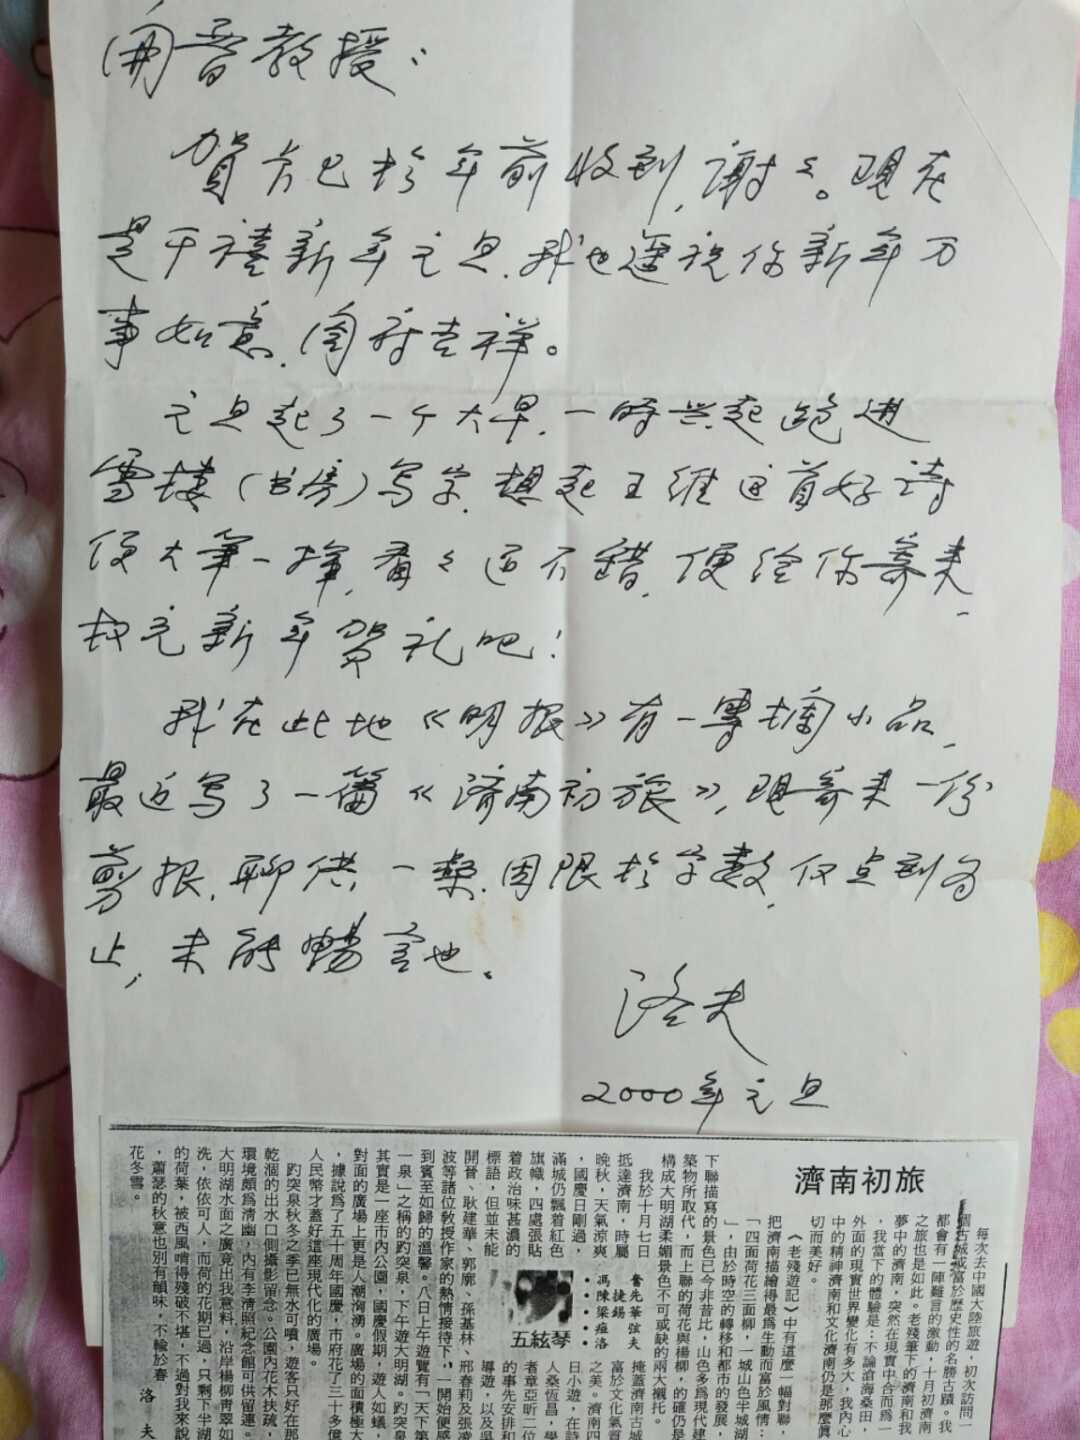 開晋教授：
賀卡已於年前收到，谢々。現在
是千禧新年元旦，我也遥祝你新年万
事如意，阖府吉祥。
元旦起了一个大早，一時兴起跑進
雪楼（书房）写字，想起王维这首好诗
便大筆一揮，看々还不錯，便给你寄来，
权充新年贺礼吧！
我在此地《明报》有一專摘小品，
最近写了一篇《济南初旅》，現寄来一份
剪报，聊供一粲，因限於字數，仅点到为
止，未能暢言也。
洛夫
2000年元旦
濟南初旅
每次去中國大陸旅遊，初次訪問一
個古城或富於歷史性的名勝古蹟。我
都會有一陣難言的激動，十月初濟南
之旅也是如此。老殘筆下的濟南和我
夢中的濟南，突然在現實中合而爲一
，我當下的體驗是：不論滄海桑田，
外面的現實世界變化有多大，我內心
中的精神濟南和文化濟南仍是那麼真
切而美好。
《老殘遊記》中有這麼一幅對聯，
把濟南描繪得最爲生動而富於風情：
「四面荷花三面柳，一城山色半城湖
」，由於時空的轉移和都市的發展，
下聯描寫的景色已今非昔比，山色多爲現代建
築物所取代，而上聯的荷花與楊柳，的確仍是
構成大明湖柔媚景色不可或缺的兩大襯托。
我於十月七日
抵達濟南，時屬
晚秋，天氣涼爽
，國慶日剛過，
滿城仍飄着紅色
旗幟，四處張貼
着政治味甚濃的
標語，但並未能
掩蓋濟南古城
富於文化氣質
之美。濟南四
日小遊，在詩
人桑恆昌，學
者章亞昕二位
的事先安排和
導遊，以及吳
開晉、耿建華、郭廓、孫基林、邢春莉及張凌
波等諸位敎授作家的熱情接待下，一開始便感
到賓至如歸的溫馨。八日上午遊覽有「天下第
一泉」之稱的趵突泉，下午遊大明湖。趵突泉
其實是一座市內公園，國慶假期，遊人如蟻，
對面的廣場上更是人潮洶湧。廣場的面積極大
，據說爲了五十周年國慶，市府花了三十多億
人民幣才蓋好這座現代化的廣場。
趵突泉秋冬之季已無水可噴，遊客只好在那
乾涸的出水口側攝影留念。公園內花木扶疏，
環境頗爲淸幽，內有李淸照紀念館可供留連。
大明湖水面之廣竟出我意料，沿岸楊柳靑翠如
洗，依依可人，而荷的花期已過，只剩下半湖
的荷葉，被西風啃得殘破不堪，不過對我來說
，蕭瑟的秋意也別有韻味，不輸於春
花冬雪。
洛夫
五絃琴